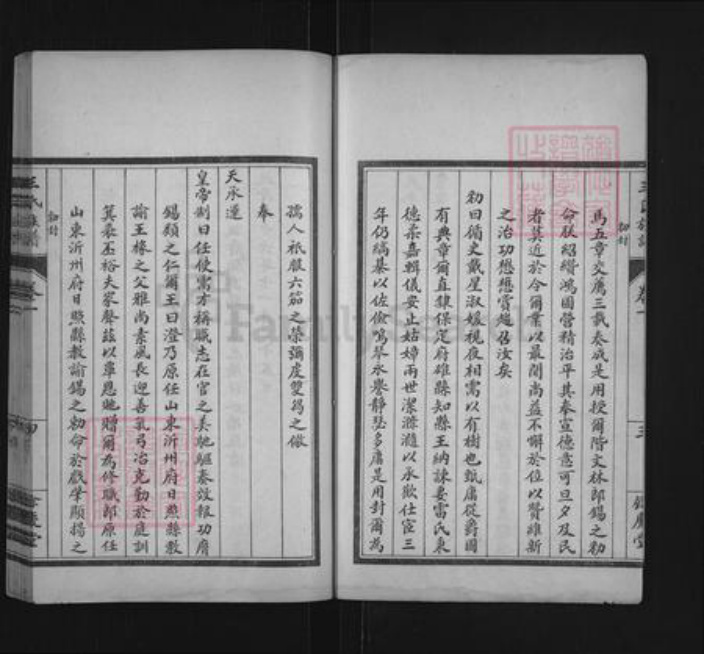 馬五章交薦三載奏成是用授爾階文林郎錫之勅
命朕紹纘鴻圖營精治平其奉宣德意可旦夕及民
者莫近於令爾業以最聞尚益不懈於位以贊維新
之治功懋懋賞趨召汝矣
勅曰循史戴星淑媛視夜相需以有樹也甄庸從爵國
有典章爾直隸保定府雄縣知縣王納諫妻雷氏柬
德柔嘉輯儀安止姑嫜兩世潔滌瀡以承歡仕宦三
年仍縞綦以佐儉鳴琴永譽靜瑟多庸是用封爾為
孺人祇嚴六笳之榮彌虔雙舄之儆
奉
天承運
皇帝制曰任使需才稱職志在官之美馳驅奏效報功膺
錫類之仁爾王曰澄乃原任山東沂州府日照縣教
諭王橡之父雅尚素風長迎善氣弓冶克勤於庭訓
箕裘丕裕夫家聲茲以覃恩貤贈爾為修職郎原任
山東沂州府日照縣教諭錫之勅命於戲肇顯揚之
王氏族譜
勅封
卷一
三
FamilySearch